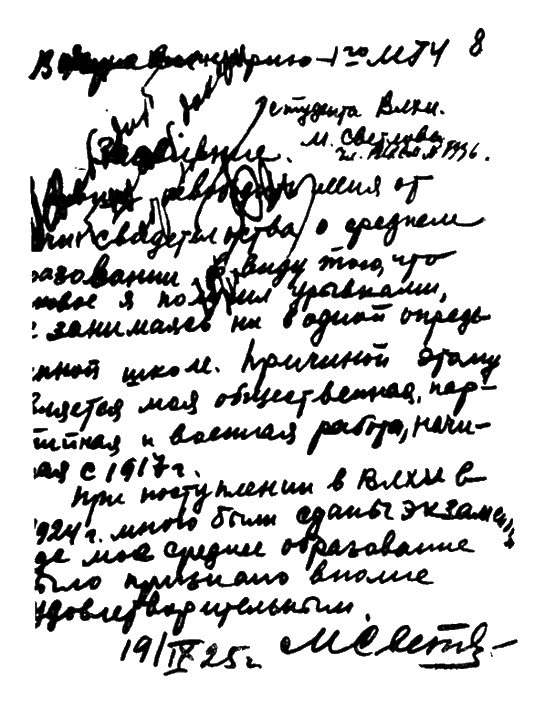 8
В канцелярию 1го МГУ
студента ВЛХИ.
М. Светлова
Заявление.
меня от
свидетельства о среднем
разовании в виду того, что
ковое я получил урывками,
е занимаясь ни в одной опреде-
нной школе. Причиной этому
вляется моя общественная, пар-
тийная и военная работа, начи-
ная с 1917 г.
При поступлении в ВЛХИ в
1924 г. мною были сданы экзамены,
где мое среднее образование
было признано вполне
удовлетворительным.
19/IX 25 г. М. Светлов